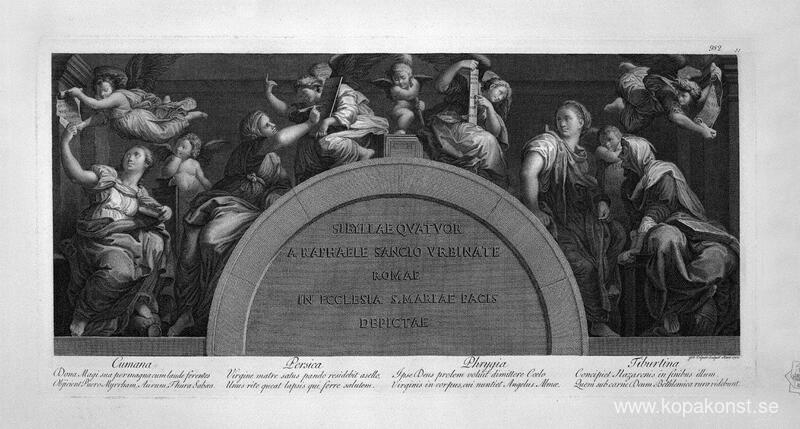 982
21
SIBYLLAE QVATVOR
A RAPHAELE SANCIO VRBINATE
ROMAE
IN ECCLESIA S. MARIAE PACIS
DEPICTAE
Cumana
Dona Magi sua per magna cum laude ferentes
Persica
Virgine matre satus pando residebit asello,
Unus rite queat lapsis qui ferre salutem.
Phrygia
Ipse Deus prolem voluit dimittere Coelo
Virginis in corpus, cui nuntiet Angelus Almae.
Tiburtina
Concipiet Nazarenis in finibus illum,
Quem sub carne Deum Bethlemica rura videbunt.
www.kopakonst.se